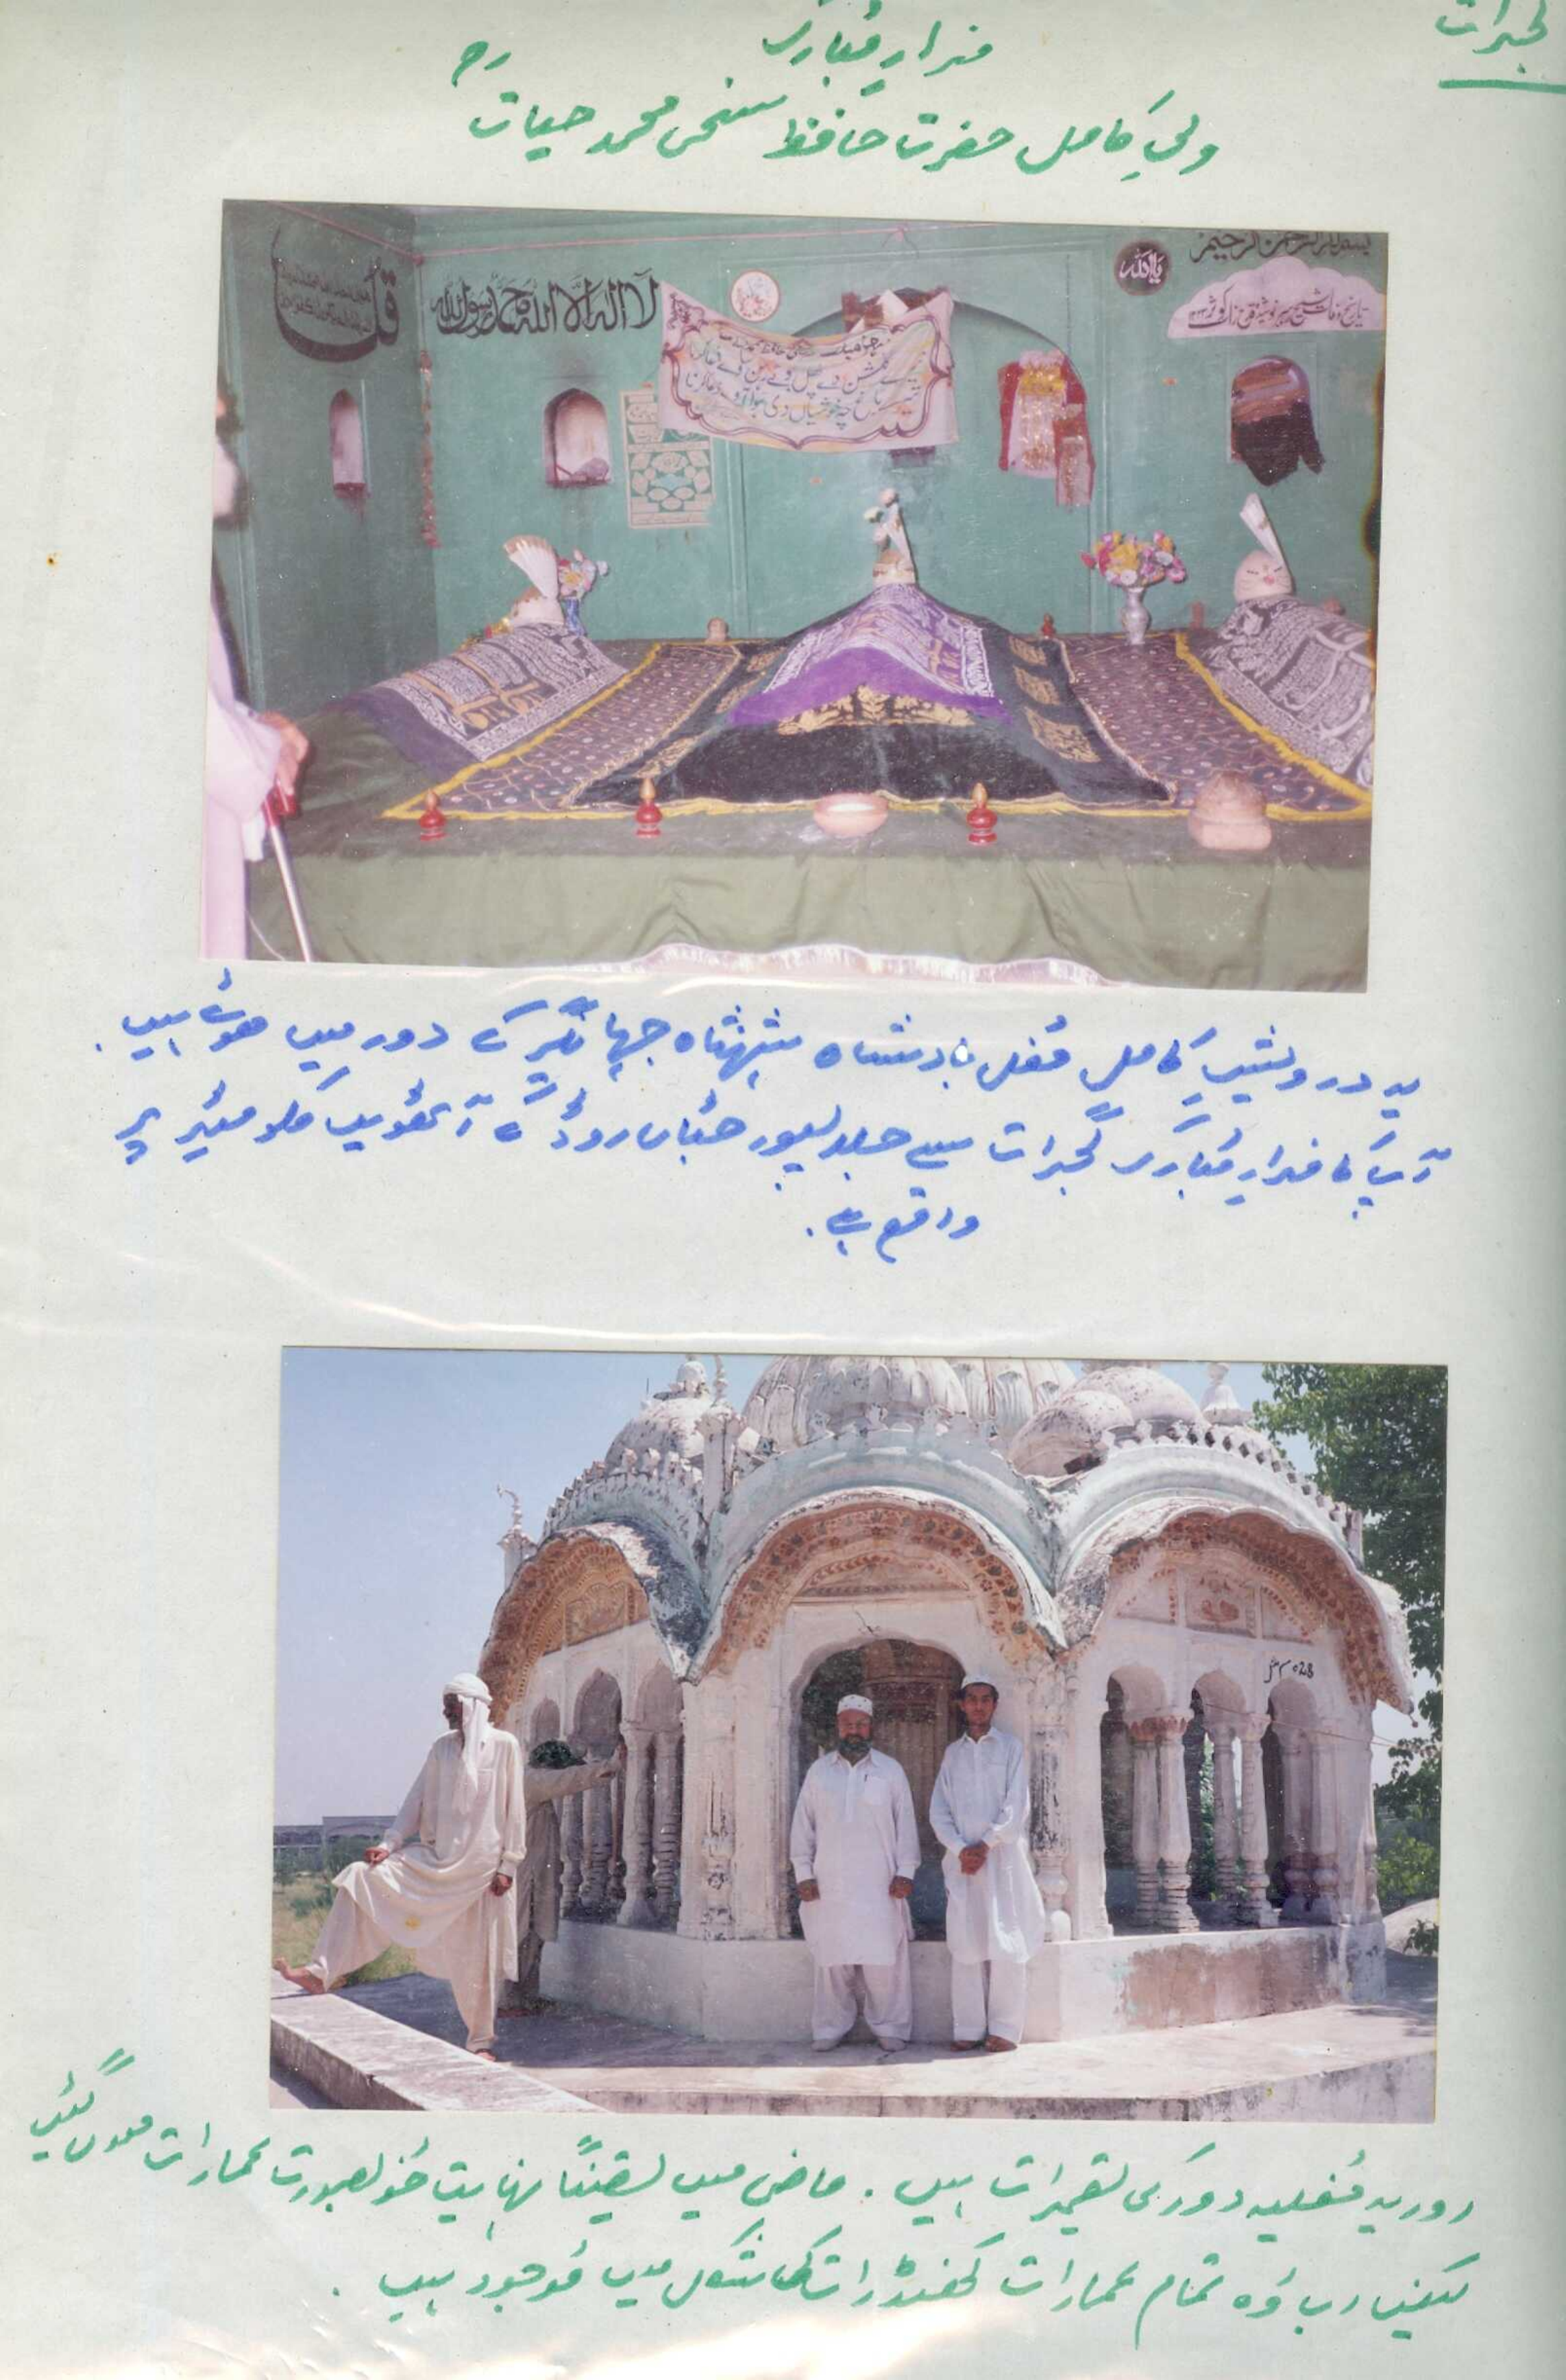 گجرات
مزارِ مُبارک
ولیِ کامل حضرت حافظ سخی محمد حیات رح
قل
لا اله الا الله محمد رسول الله
یا الله
بسم الله الرحمن الرحیم
یہ درویشِ کامل مُغل بادشاہ شہنشاہ جہانگیر کے دور میں ہوئے ہیں۔
آپ کا مزارِ مُبارک گجرات سے جلالپور جٹاں روڈ کے آٹھویں کلو میٹر پر
واقع ہے۔
اور یہ مُغلیہ دور کی تعمیرات ہیں۔ ماضی میں یقیناً نہایت خوبصورت عمارات ہوں گئیں
لیکن اب وہ تمام عمارات کھنڈرات کی شکل میں موجود ہیں۔